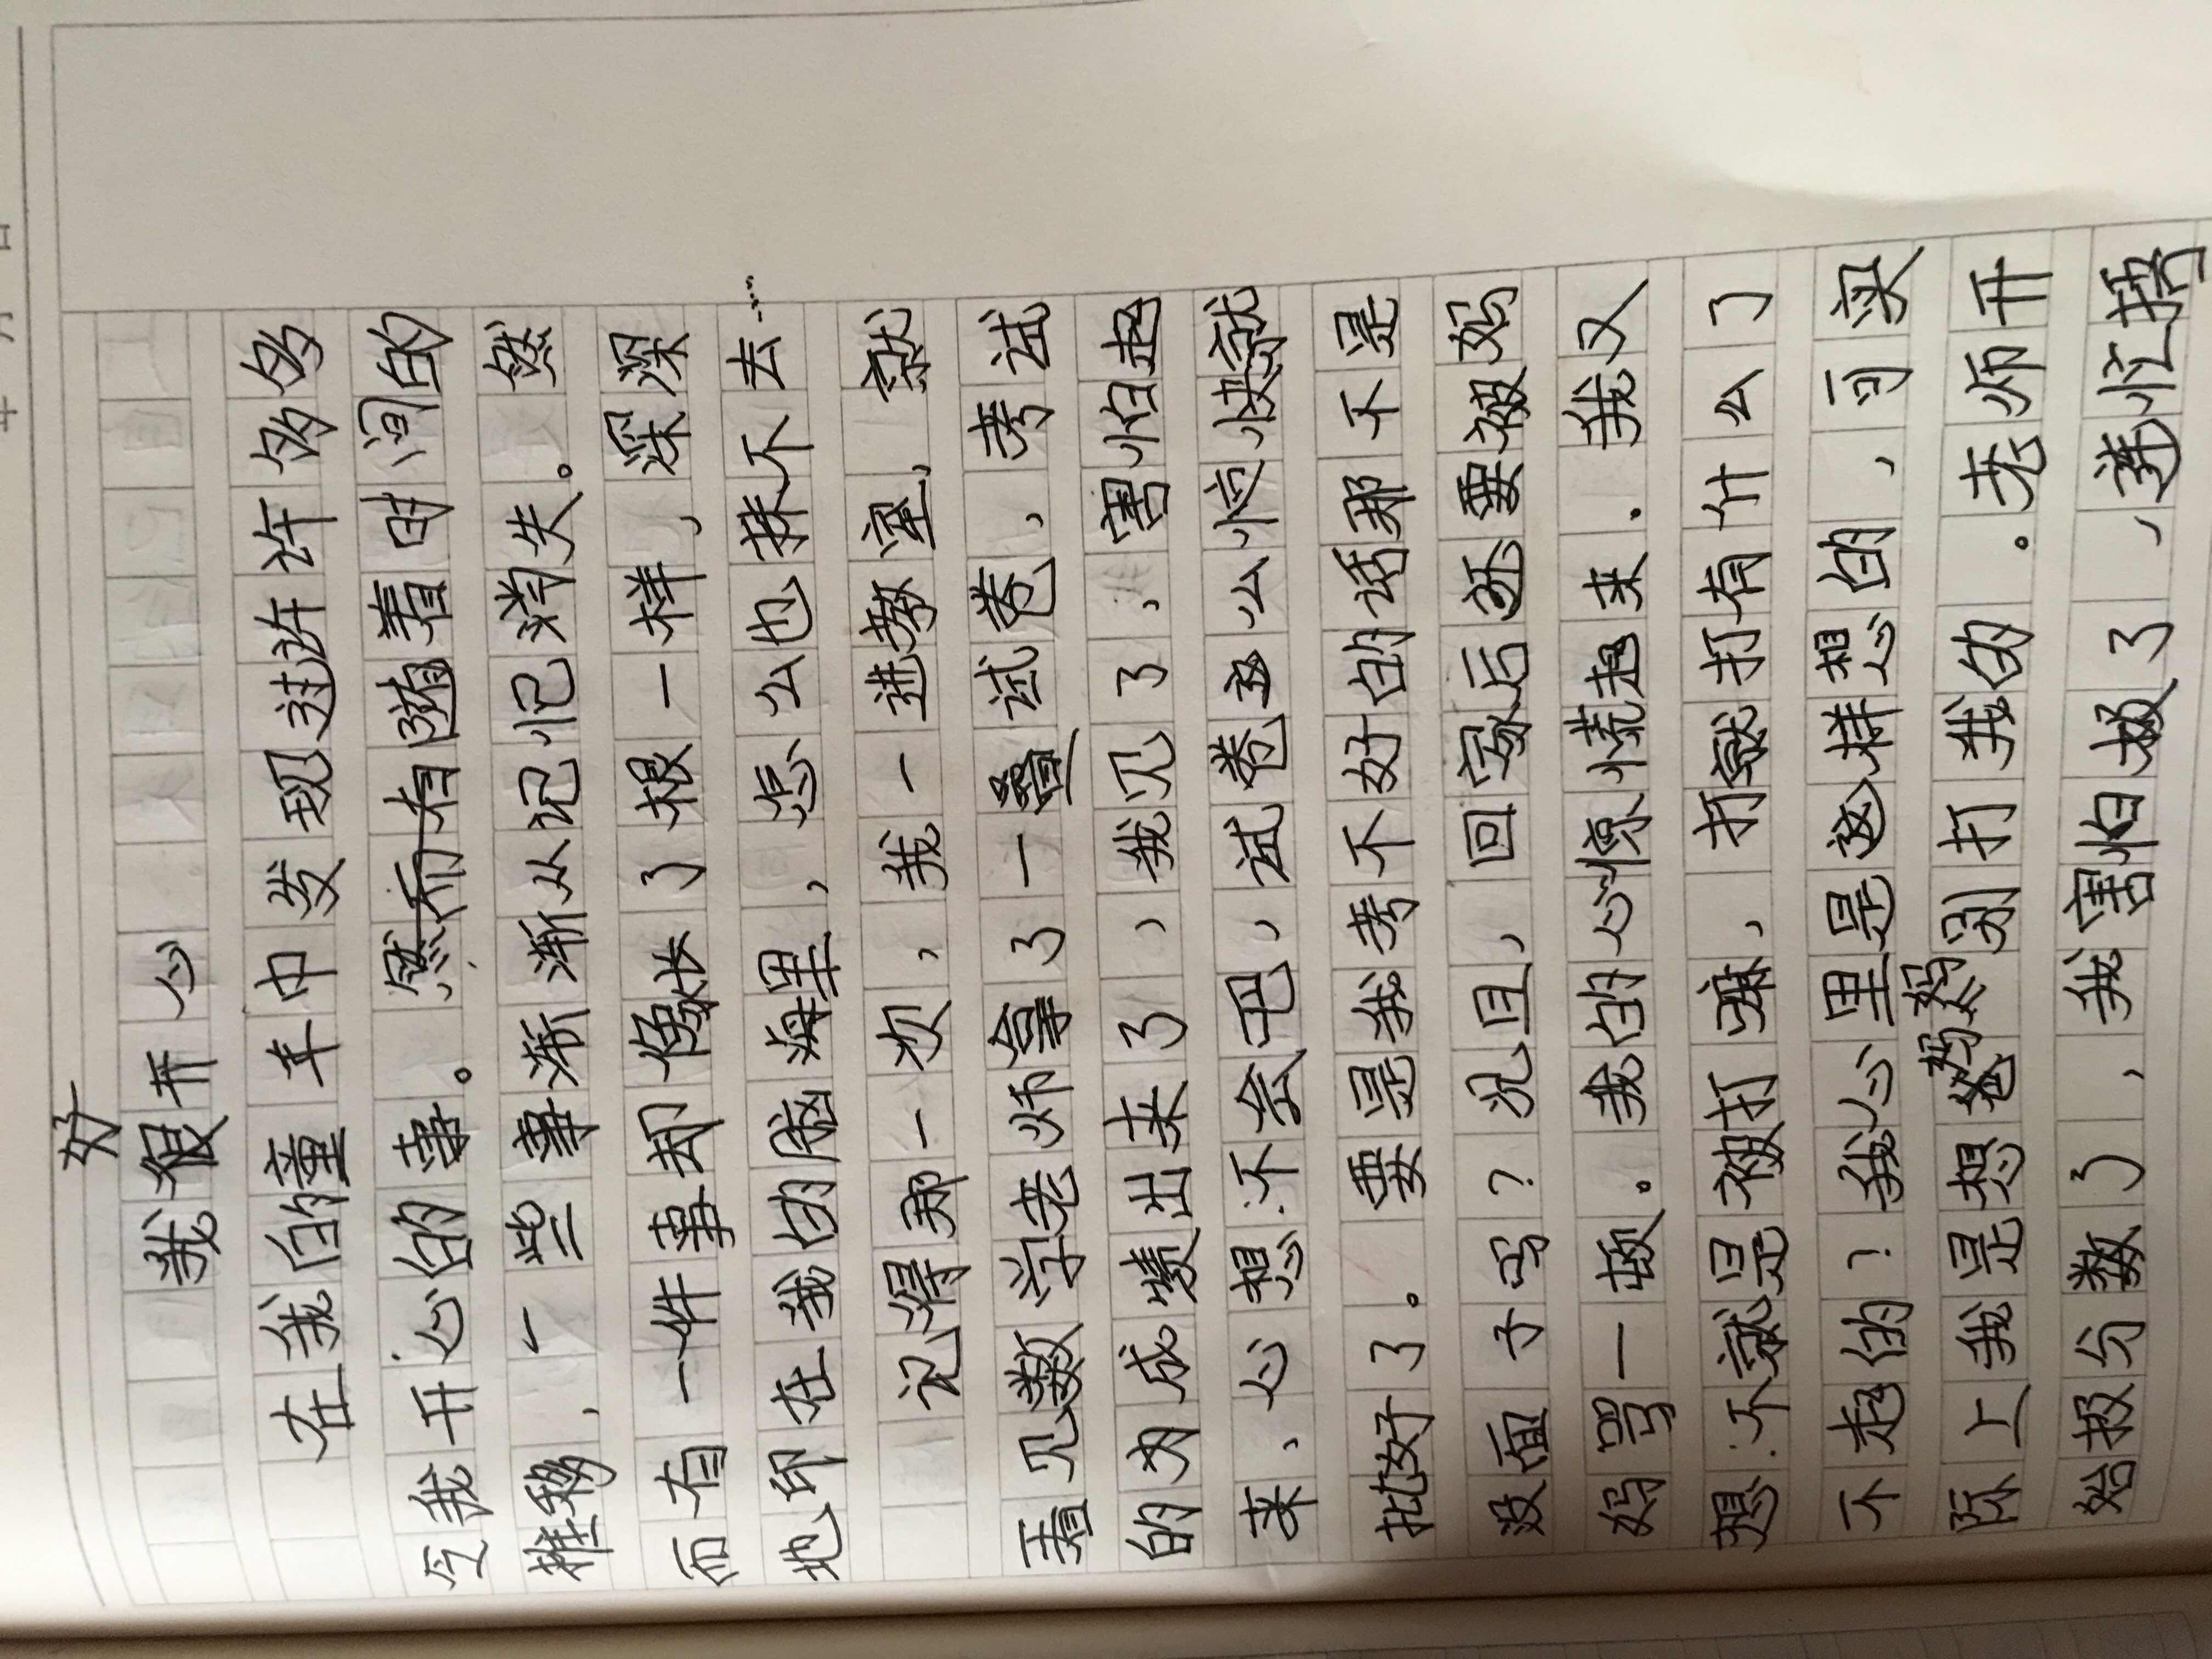 年 月 日
好
我很开心
在我的童年中发现过许许多多
令我开心的事。然而有随着时间的
推移，一些事渐渐从记忆消失。然
而有一件事却像长了根一样，深深
地印在我的脑海里，怎么也抹不去……
记得那一次，我一进教室，就
看见数学老师拿了一叠试卷，考试
的为成绩出来了，我见了，害怕起
来，心想：不会吧，试卷这么快就
批好了。要是我考不好的话那不是
没面子吗？况且，回家后还要被妈
妈骂一顿。我的心惊慌起来。我又
想：不就是被打嘛，打就打有什么了
不起的？我心里是这样想的，可实
际上我是想爸爸妈妈别打我的。老师开
始报分数了，我害怕极了，连忙捂